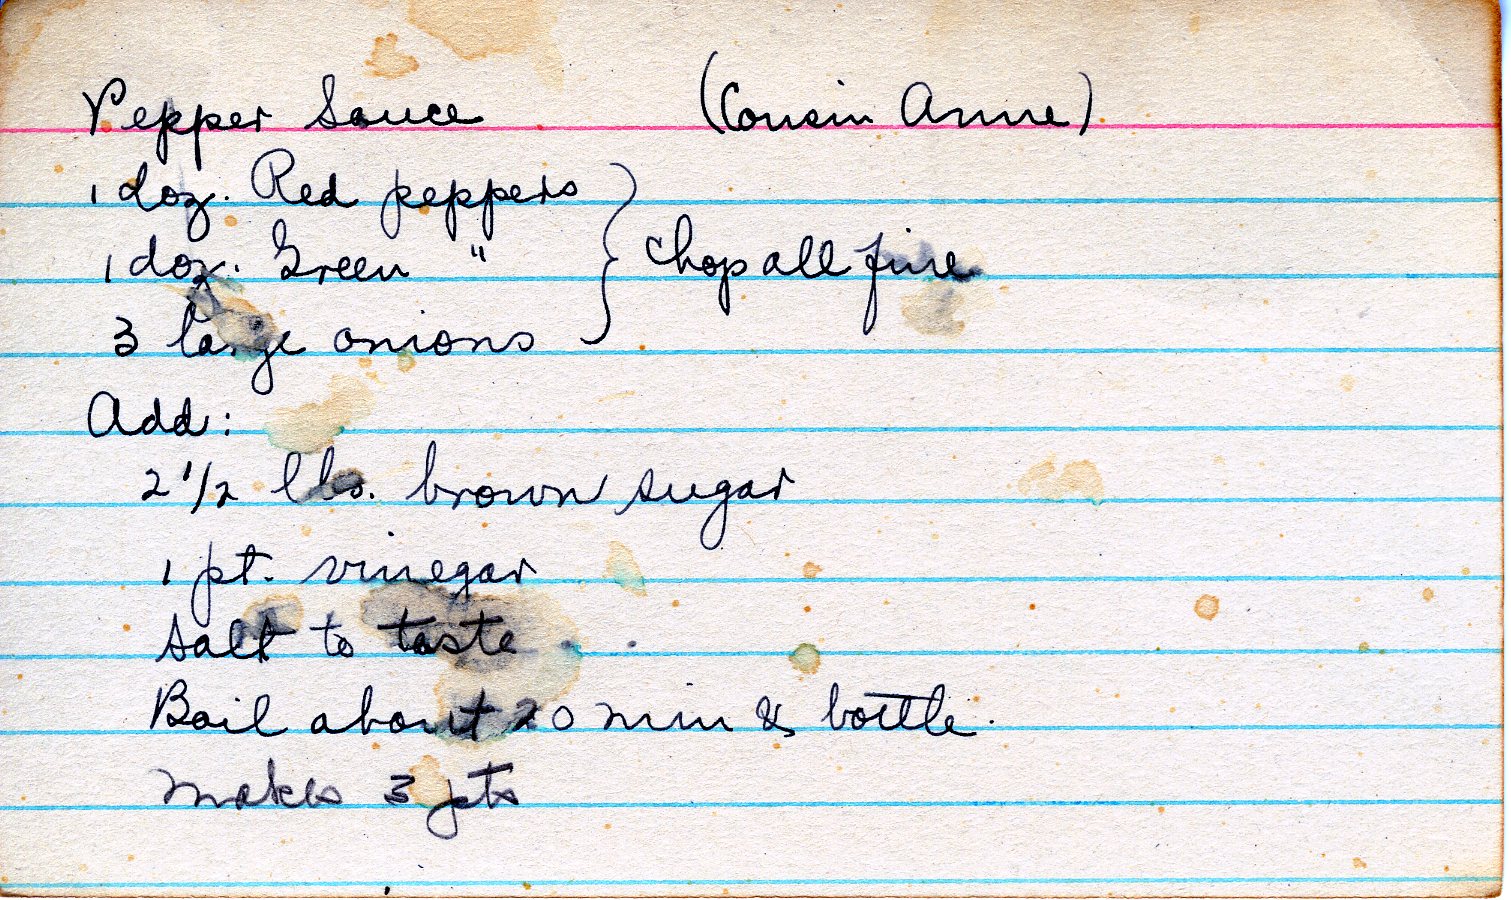 Pepper Sauce (Cousin Anne)
1 doz. Red peppers
1 doz. Green " } Chop all fine
3 large onions
Add:
2 1/2 lbs. brown sugar
1 pt. vinegar
Salt to taste
Boil about 20 min & bottle.
Makes 3 pts